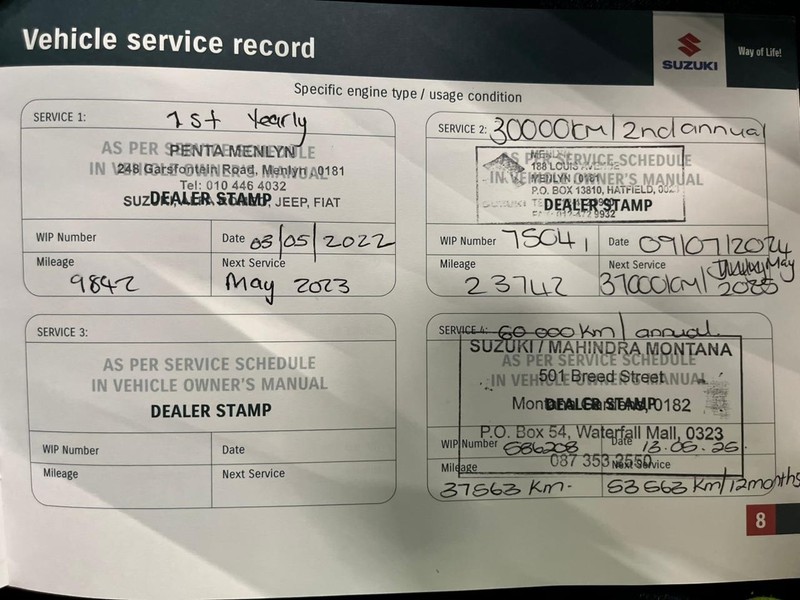 Vehicle service record
SUZUKI
Way of Life!
Specific engine type / usage condition
SERVICE 1: 1st Yearly
AS PER SERVICE SCHEDULE
IN VEHICLE OWNER'S MANUAL
DEALER STAMP
PENTA MENLYN
248 Garsfontein Road, Menlyn, 0181
Tel: 010 446 4032
JEEP, FIAT
WIP Number
Date 03/05/2022
Mileage 9842
Next Service May 2023
SERVICE 2: 30000km/2nd annual
AS PER SERVICE SCHEDULE
IN VEHICLE OWNER'S MANUAL
DEALER STAMP
MENLYN
MENLYN 0181
P.O. BOX 13810, HATFIELD,
WIP Number 75041
Date 09/07/2024
Mileage 23742
Next Service 37000km/ May
2025
SERVICE 3:
AS PER SERVICE SCHEDULE
IN VEHICLE OWNER'S MANUAL
DEALER STAMP
WIP Number
Date
Mileage
Next Service
SERVICE 4: 60 000 km/ annual
AS PER SERVICE SCHEDULE
IN VEHICLE OWNER'S MANUAL
DEALER STAMP
SUZUKI / MAHINDRA MONTANA
501 Breed Street
Montana Gardens, 0182
P.O. Box 54, Waterfall Mall, 0323
087 353 2550
WIP Number 586208
Date 13.05.25.
Mileage 37563 Km.
Next Service 53563 Km/12months
8